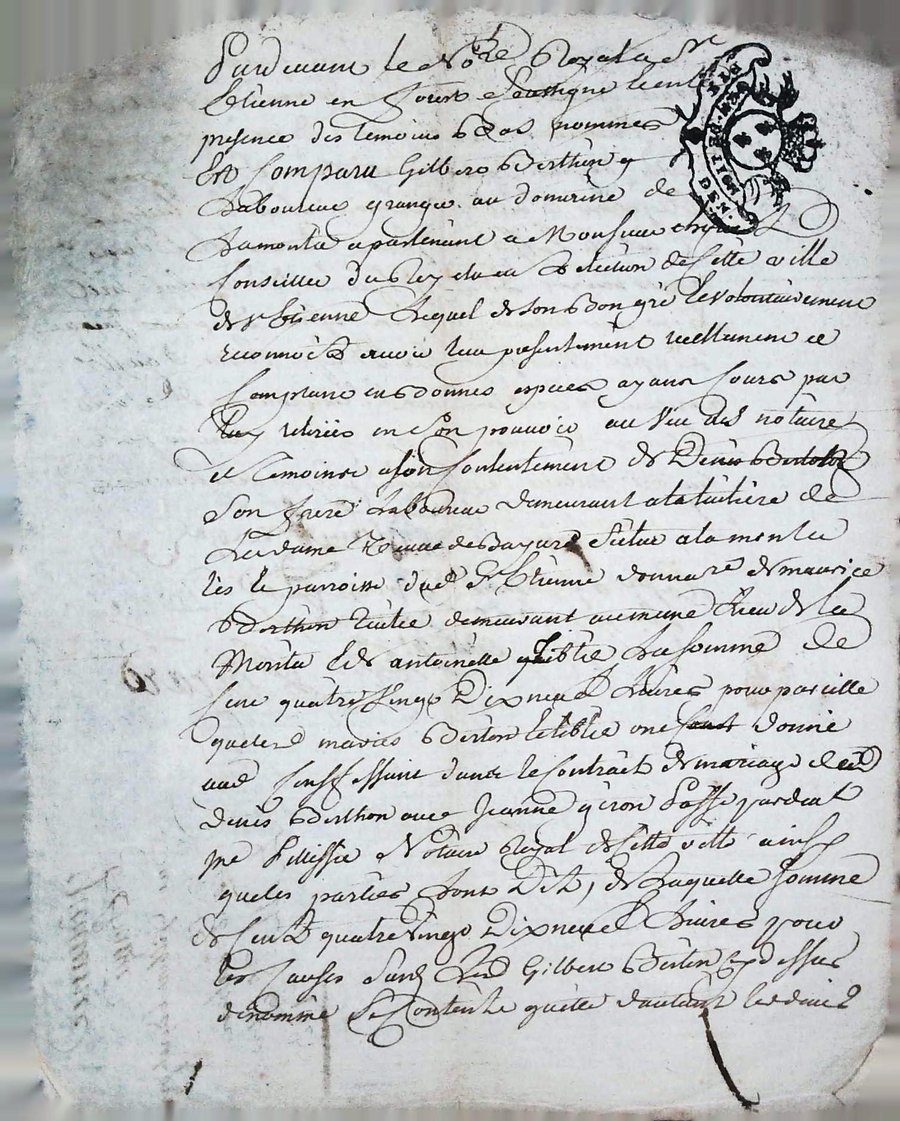 Pardevant le No.re Royal a St
Etienne en forest soussigne et en
presence des temoins bas nommes
Est Comparu Gilbert Berthon
Laboureur granger au domeine de
Lamonta apartenant a Monsieur
Conseiller du Roy en Election de cette ville
de St Etienne Lequel de son bon gré & volontairement
reconnoit avoir Receu presentement reellement et
Comptant en bonnes especes ayant Cours par
luy retirées en son pouvoir au veu des notaire
et temoins a son Contentement de Denis Berthon
Son frere Laboureur demeurant a la tuilière de
La dame veuve de Bayard située a la monta
les la parroisse dud. St Etienne donnare de maurice
Berthon demeurant au meme Lieu de la
Monta & de antoinette thiblié La somme de
Cent quatre Vingt Dixneuf Livres pour pareille
que led maurice Berton & tiblié ont donné
aud Confessant dans le Contract de mariage dud
Denis Berthon avec Jeanne giron passé pardevt
me Pelissié Notaire Royal de Cette ville ainsy
que les parties L'ont Dit, de Laquelle Somme
de Cent quatre Vingt Dixneuf Livres pour
les Causes Susd Led Gilbert Berton cy dessus
denommé se Contente quitte d'autant led denis